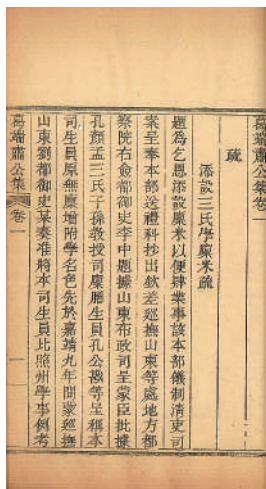 葛端肅公集卷一
疏
添設三氏學廩米疏
題爲乞恩添設廩米以便肄業事該本部儀制清吏司
案呈奉本部送禮科抄出欽差巡撫山東等處地方都
察院右僉都御史李中題據山東布政司呈蒙臣批據
孔顏孟三氏子孫教授司廩膳生員孔公 等呈稱本
司生員原無廩增附學名色先於嘉靖九年間蒙巡撫
山東劉都御史某奏准將本司生員比照州學事例考
葛端肅公集
卷一
一